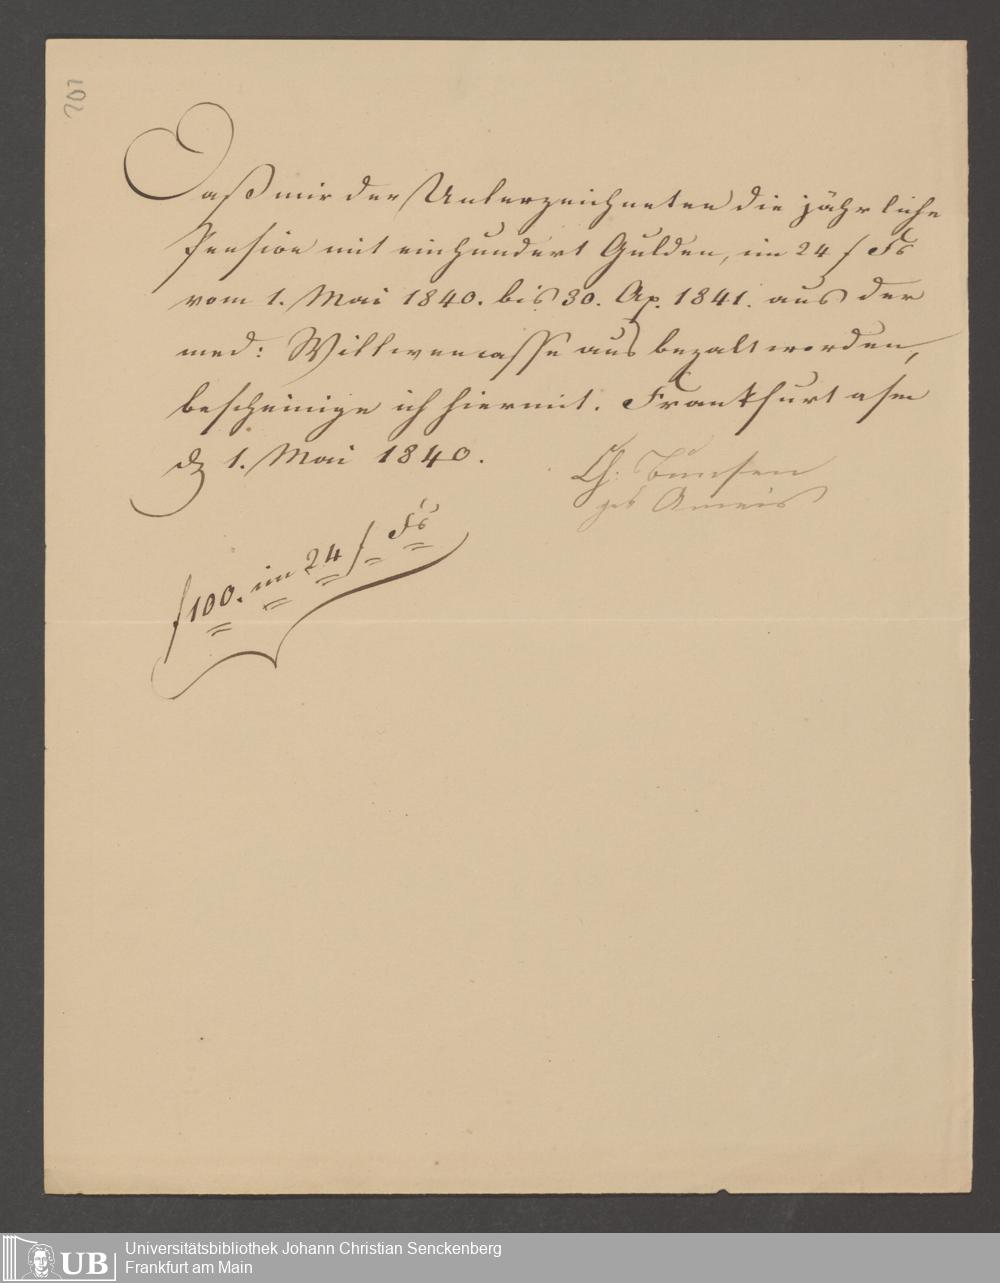 202
Daß mir der Unterzeichneten die jährliche
Pension mit einhundert Gulden, im 24 f Fs
vom 1. Mai 1840. bis 30. Ap. 1841. aus der
med: Wittwencasse ausbezalt worden,
bescheinige ich hiermit. Frankfurt a/m
d 1. Mai 1840.
Ch: Bunsen
geb Ameis
f 100. im 24 f Fs
Universitätsbibliothek Johann Christian Senckenberg
Frankfurt am Main
UB